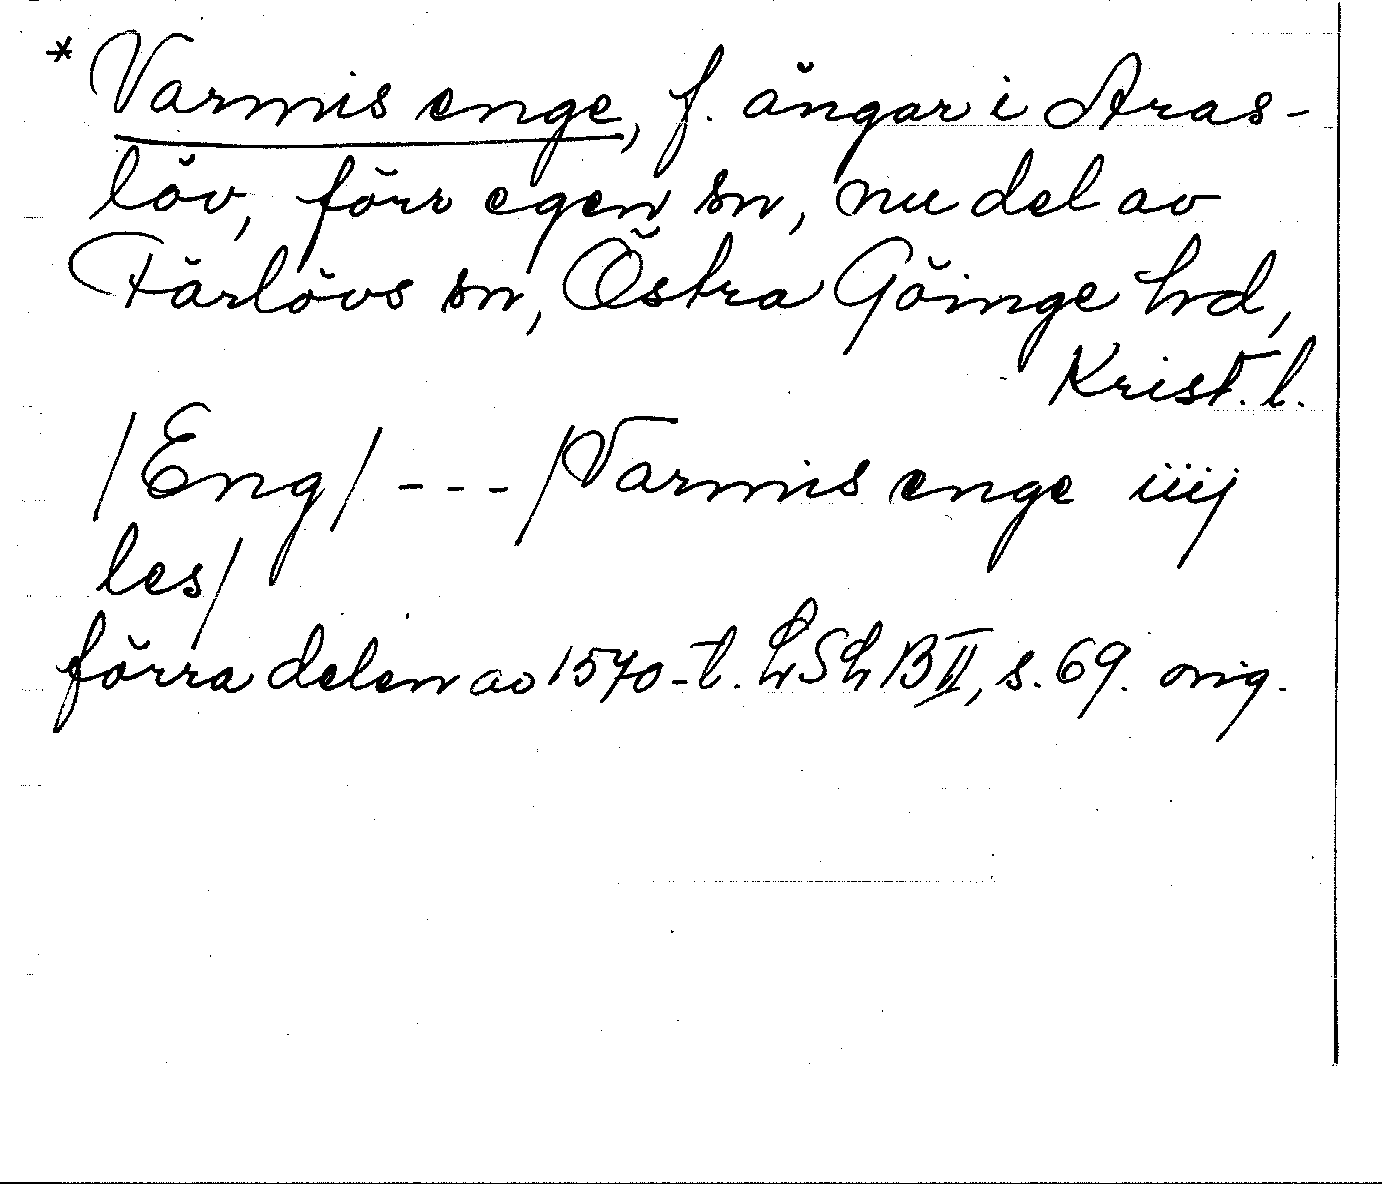 * Varmis enge, f. ängar i Aras-
löv, förr egen sn, nu del av
Färlövs sn, Östra Göinge hrd,
Krist. l.
/Eng/ --- /Varmis enge iiij
les/
förra delen av 1570-t. LSL BII, s. 69. orig.